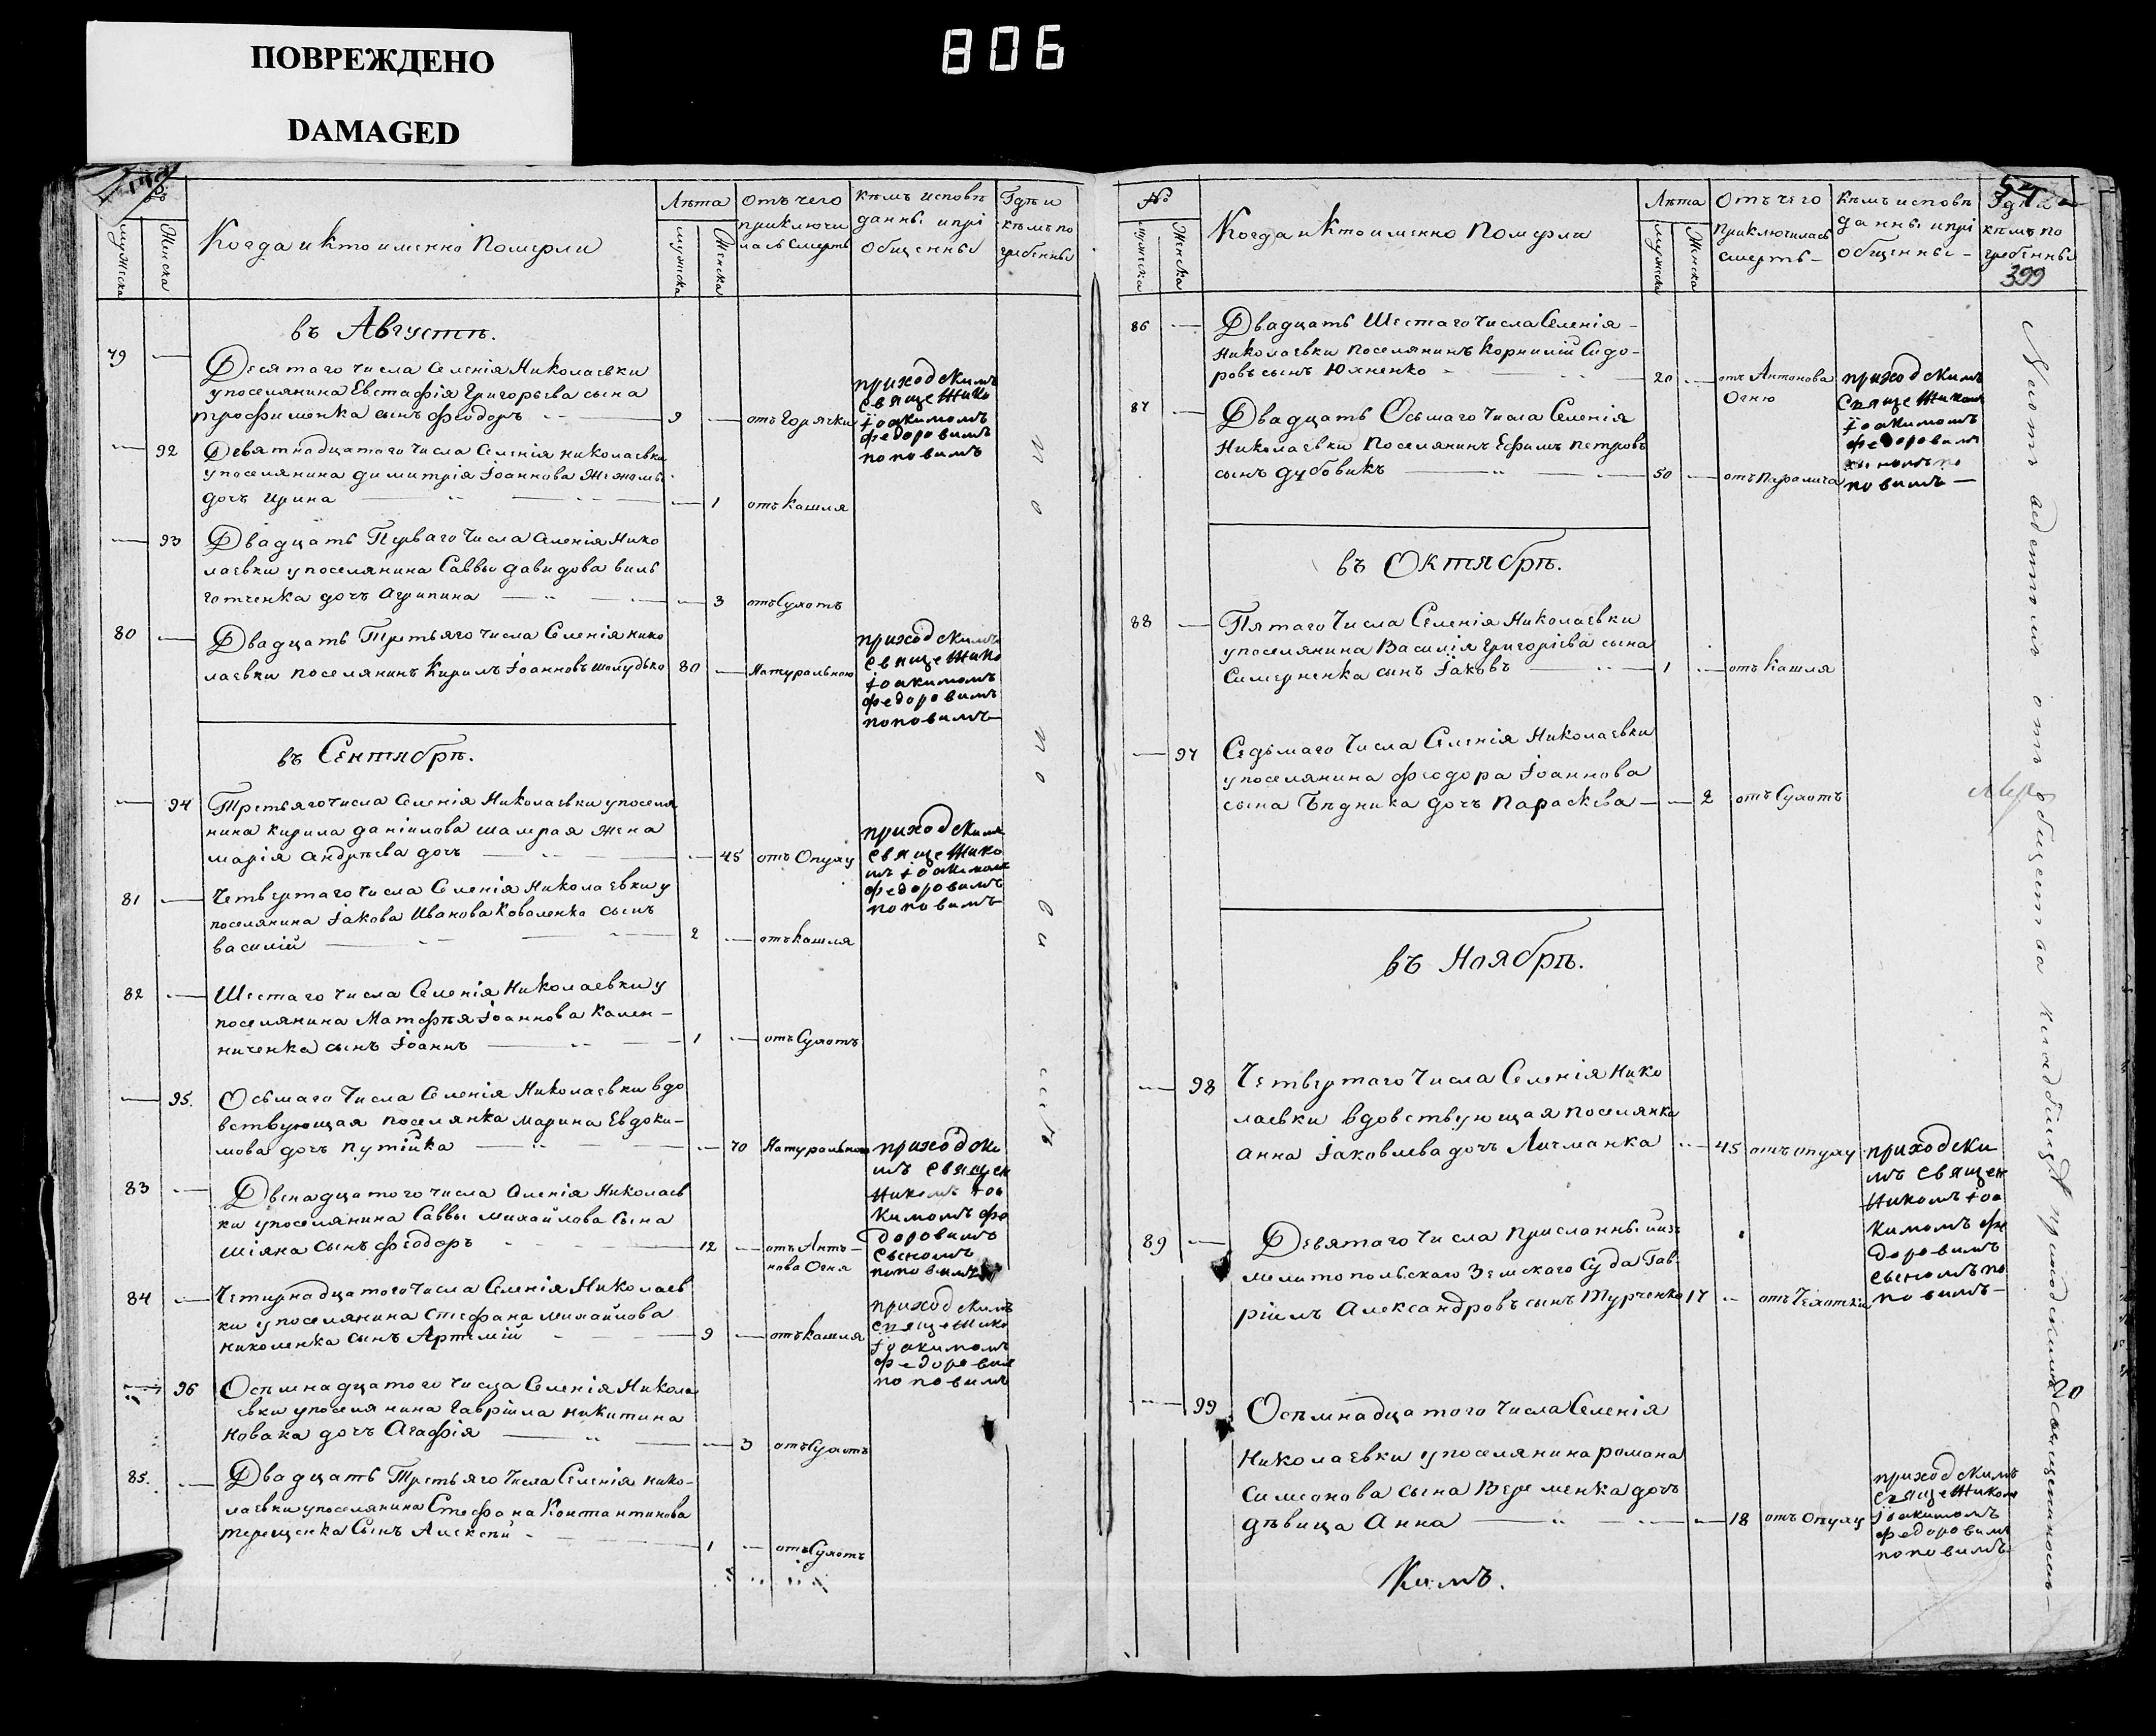 ПОВРЕЖДЕНО
DAMAGED
806
Когда и кто именно Померли
Лѣта
Отъ чего приключилась Смерть
Кѣмъ исповѣданны и пріобщенны
Гдѣ и кѣмъ погребенны
Мужеска
Женска
въ Августѣ.
79
Десятаго числа Селенія Николаевки
у поселянина Евстафія Григорьева сына
Трофименка сынъ Феодоръ
9
отъ Горячки
приходскимъ
Священико
Іоакимомъ
Федоровимъ
Поповимъ
92
Девятнадцатаго числа Селенія Николаевки
у поселянина Димитрія Іоаннова
дочъ Ирина
1
отъ Кашля
93
Двадцать Перваго числа Селенія Нико
лаевки у поселянина Саввы Давидова Виль
готченка дочъ Агрипина
3
отъ Сухотъ
80
Двадцать Третьяго числа Селенія Нико
лаевки поселянинъ Кирилъ Іоанновъ Шолудько
80
Натуральною
приходскимъ
Священико
Іоакимомъ
Федоровимъ
Поповимъ
въ Сентябрѣ.
94
Третьяго числа Селенія Николаевки у поселя
нина Кирила Даніилова Шамрая жена
Марія Андрѣева дочъ
45
отъ Опуху
приходскимъ
Священико
мъ Іоакимомъ
Федоровимъ
Поповимъ
81
Четвертаго числа Селенія Николаевки у
поселянина Іакова Иванова Коваленка сынъ
Василій
2
отъ Кашля
82
Шестаго числа Селенія Николаевки у
поселянина Матфѣя Іоаннова Кален-
ниченка сынъ Іоаннъ
1
отъ Сухотъ
95.
Осьмаго числа Селенія Николаевки вдо
вствующая поселянка Марина Евдоки-
мова дочъ Путійка
70
Натуральною
приходски
мъ Священ
никомъ Іоа
кимомъ Фе
доровимъ
Сыномъ
Поповимъ
83
Двенадцатого числа Селенія Николаев
ки у поселянина Саввы Михайлова Сына
Шіяна Сынъ Феодоръ
12
отъ Анто-
нова Огня
84
Четирнадцатого числа Селенія Николаев
ки у поселянина Стефана Михайлова
Николенка Сынъ Артемій
9
отъ Кашля
приходскимъ
Священико
Іоакимомъ
Федоровим
Поповимъ
96
Осмнадцатого числа Селенія Никола
евки у поселянина Гавріила Никитина
Новака дочъ Агафія
3
отъ Сухотъ
85.
Двадцать Третьяго числа Селенія Нико-
лаевки у поселянина Стефана Константинова
Терещенка Сынъ Алексѣй
1
отъ Сухотъ
№
Мужеска
Женска
Когда и Кто именно Померли
Лѣта
Отъ чего приключилась смерть
Кѣмъ исповѣданны и пріобщенны
кѣмъ погребенны
399
86
Двадцать Шестаго числа Селенія
Николаевки поселянинъ Корнилій Сидо-
ровъ сынъ Юхненко
20
отъ Антонова
Огню
приходскимъ
Священикомъ
Іоакимомъ
Федоровимъ
Сыномъ По
повимъ
87
Двадцать Осьмаго числа Селенія
Николаевки Поселянинъ Ефимъ Петровъ
сынъ Дубовикъ
50
отъ Паралича
въ Октябрѣ.
88
Пятаго числа Селенія Николаевки
у поселянина Василія Григоріева сына
Симерненка сынъ Іаковъ
1
отъ Кашля
97
Седьмаго числа Селенія Николаевки
у поселянина Феодора Іоаннова
сына Бѣдника дочъ Параскева
2
отъ Сухотъ
въ Ноябрѣ.
98
Четвертаго числа Селенія Нико
лаевки вдовствующая поселянка
Анна Іаковлева дочъ Личманка
45
отъ опуху
приходски
мъ Священ
никомъ Іоа
кимомъ Фе
доровимъ
Сыномъ По
повимъ
89
Девятаго числа присланный изъ
Мелитопольскаго Земскаго Суда Гав-
ріилъ Александровъ сынъ Турченко
17
отъ Чехотки
99
Осѣмнадцатого числа Селенія
Николаевки у поселянина Романа
Симеонова сына Веременка дочъ
дѣвица Анна
18
отъ Опуху
приходскимъ
Священиком
Іоакимомъ
Федоровимъ
Поповимъ
20